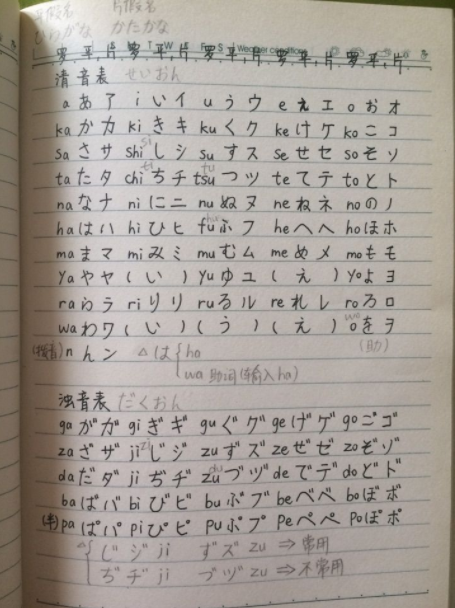 平假名 片假名
ひらがな かたかな
罗,平,片 T W 罗,平,片 Weather conditions 罗,平,片 罗,平,片
清音表 せいおん
a あ ア i い イ u う ウ e え エ o お オ
ka か カ ki き キ ku く ク ke け ケ ko こ コ
sa さ サ shi si し シ su す ス se せ セ so そ ソ
ta た タ chi ti ち チ tsu tu つ ツ te て テ to と ト
na な ナ ni に ニ nu ぬ ヌ ne ね ネ no の ノ
ha は ハ hi ひ ヒ fu hu ふ フ he へ ヘ ho ほ ホ
ma ま マ mi み ミ mu む ム me め メ mo も モ
ya や ヤ (い) yu ゆ ユ (え) yo よ ヨ
ra ら ラ ri り リ ru る ル re れ レ ro ろ ロ
wa わ ワ (い) (う) (え) o wo を ヲ
(拨音) n ん ン △ は { ho (助)
wa 助词(输入ha)
浊音表 だくおん
ga が ガ gi ぎ ギ gu ぐ グ ge げ ゲ go ご ゴ
za ざ ザ ji zi じ ジ zu ず ズ ze ぜ ゼ zo ぞ ゾ
da だ ダ ji ぢ ヂ zu du づ ヅ de で デ do ど ド
ba ば バ bi び ビ bu ぶ ブ be べ ベ bo ぼ ボ
(半) pa ぱ パ pi ぴ ピ pu ぷ プ pe ぺ ペ po ぽ ポ
△ { じ ジ ji ず ズ zu ⇒ 常用
ぢ ヂ ji づ ヅ zu ⇒ 不常用